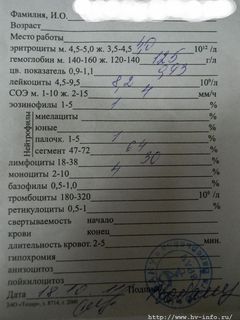 Фамилия, И.О.
Возраст
Место работы
эритроциты м. 4,5-5,0 ж. 3,5-4,5 4,0 10¹²/л
гемоглобин м. 140-160 ж. 120-140 125 г/л
цв. показатель 0,9-1,1 0,93
лейкоциты 4,5-9,5 8,2 10⁹/л
СОЭ м. 1-10 ж. 2-15 4 мм/ч
эозинофилы 1-5 1 %
Нейтрофилы
миелациты %
юные %
палочк. 1-5 1 %
сегмент 47-72 64 %
лимфоциты 18-38 30 %
моноциты 2-10 4 %
базофилы 0,5-1,0 %
тромбоциты 180-320 10⁹/л
ретикулоциты 0,5-1 %
свертываемость начало
крови конец
длительность кровот. 2-5 мин.
гипохромия
анизоцитоз
пойкилоцитоз
Дата 18.10.11 Подпись
ЗАО «Теацер», з. 8714, т. 2000
http://www.hv-info.ru/